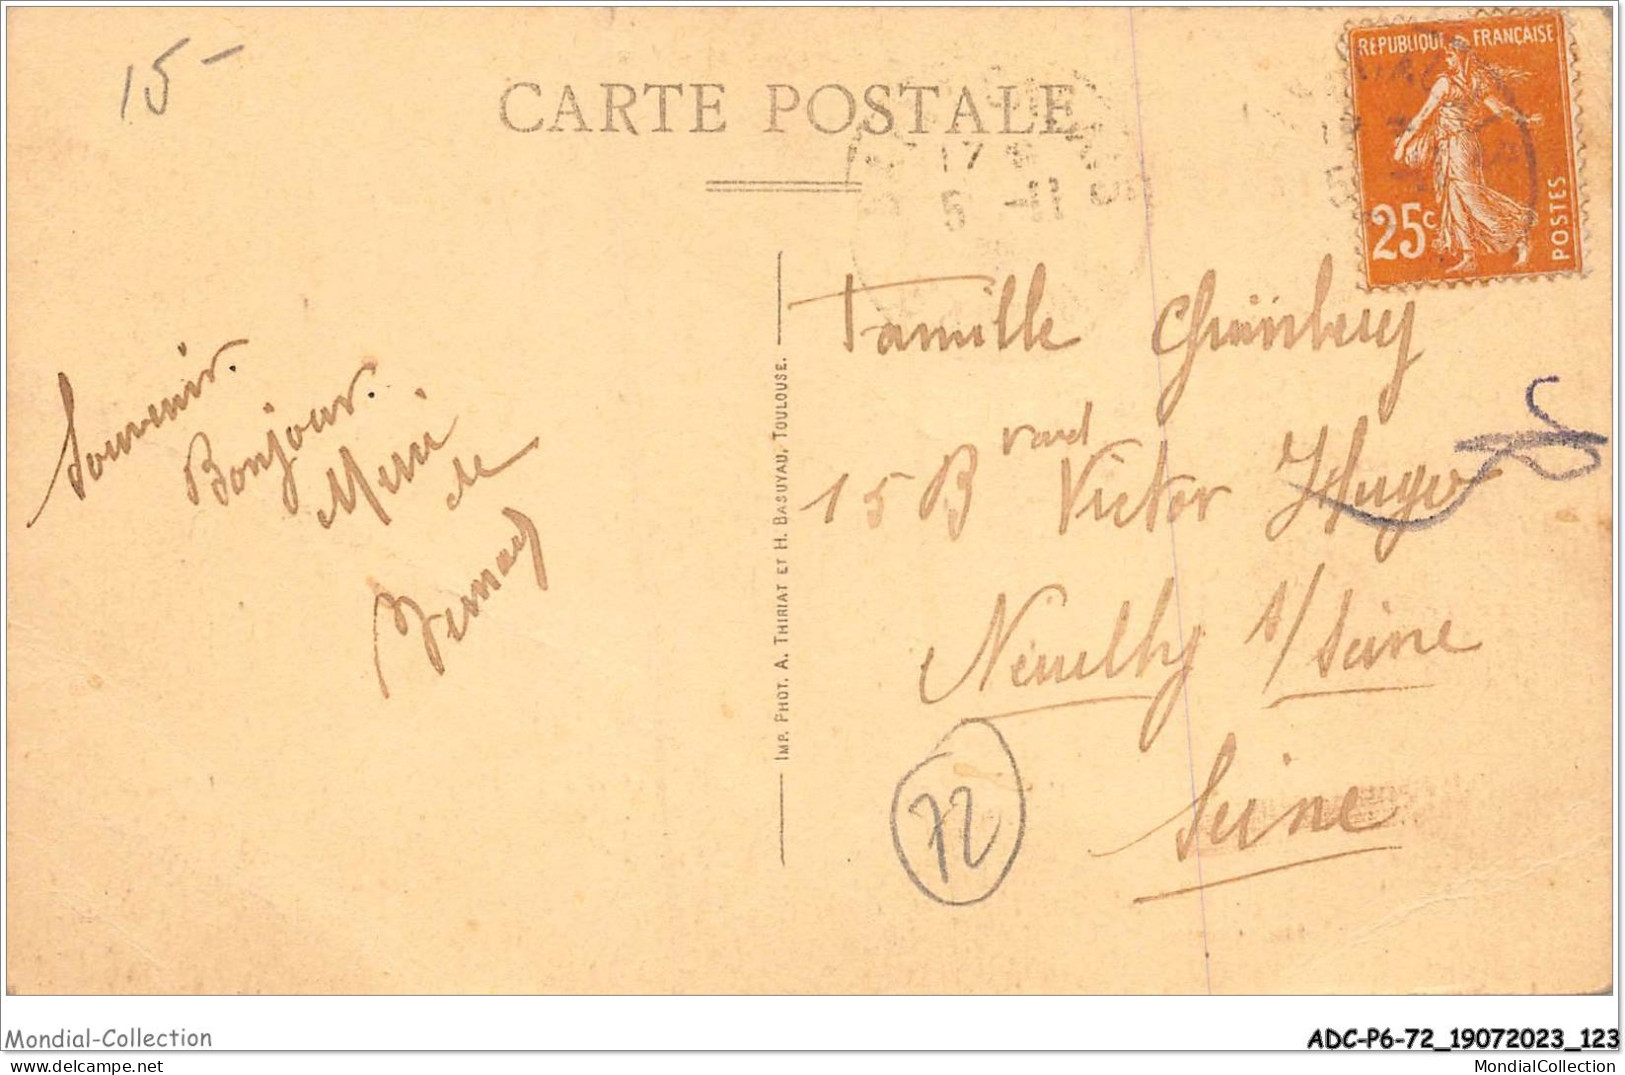 15-
CARTE POSTALE
RÉPUBLIQUE FRANÇAISE
25c
POSTES
17
5 -11
Souvenir.
Bonjour.
de
Famille
15 Bvard Victor Hugo
Neuilly s/ Seine
Seine
72
IMP. PHOT. A. THIRIAT ET H. BASUYAU, TOULOUSE.
Mondial-Collection
ADC-P6-72_19072023_123
MondialCollection